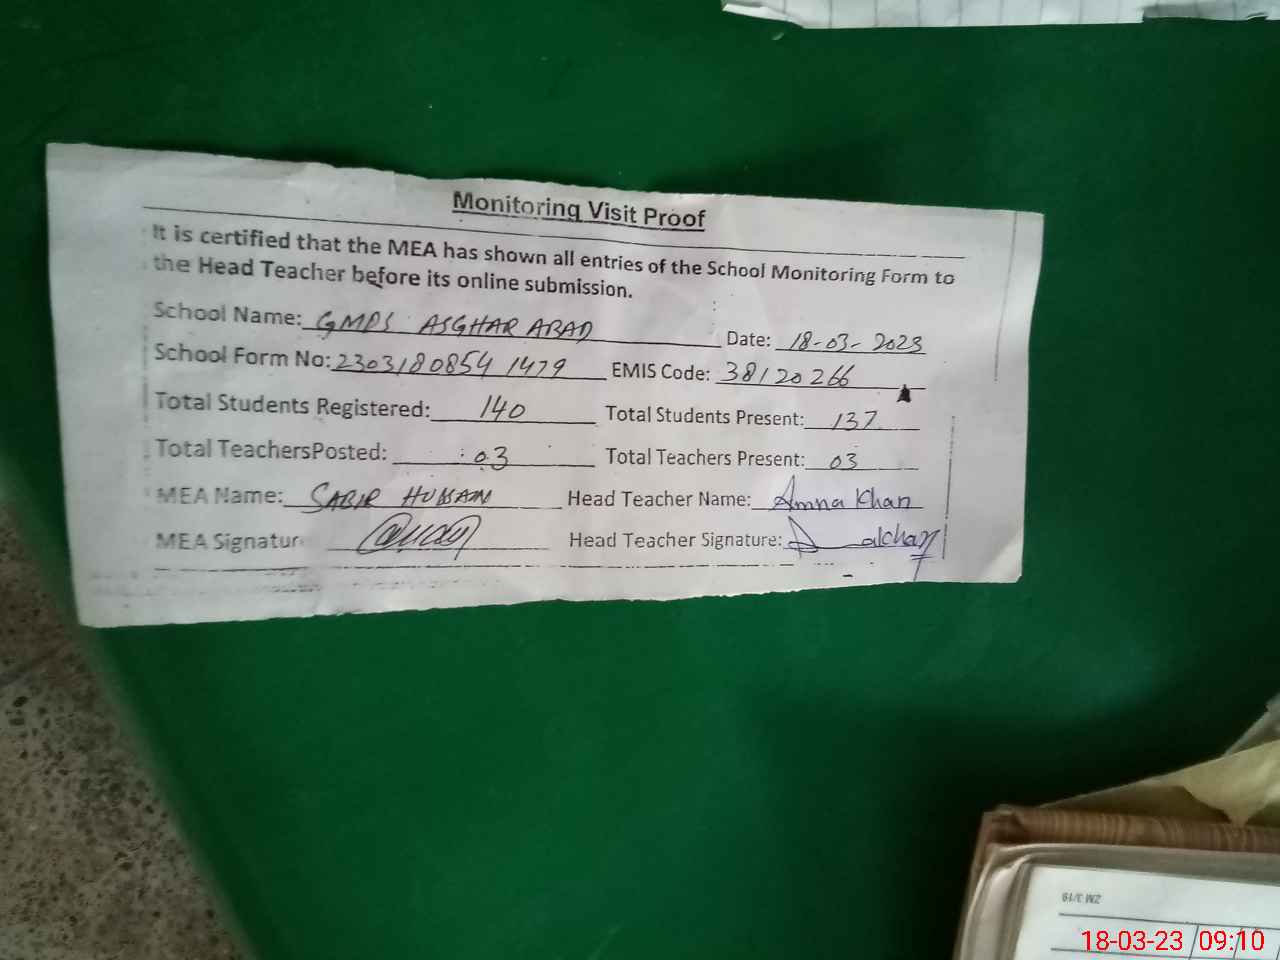 Monitoring Visit Proof
It is certified that the MEA has shown all entries of the School Monitoring Form to
the Head Teacher before its online submission.
School Name: GMPS ASGHAR ABAD Date: 18-03-2023
School Form No: 23031808541479 EMIS Code: 38120266
Total Students Registered: 140 Total Students Present: 137
Total TeachersPosted: 03 Total Teachers Present: 03
MEA Name: SABIR HUSSAIN Head Teacher Name: Amna Khan
MEA Signatur Head Teacher Signature:
ZM 3/19
18-03-23 09:10